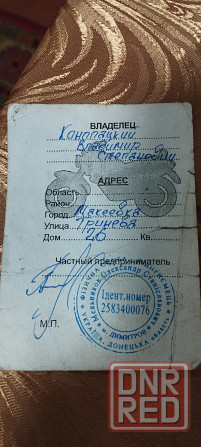 ВЛАДЕЛЕЦ
Конопацкий
Владимир
Степанович
АДРЕС
Область
Район
Город Макеевка
Улица Грунева
Дом 20 Кв.
Частный предприниматель
М.П.
Ідент.номер
2583400076
Мельников Олександр Станіславович
УКРАЇНА, ДОНЕЦЬКА область
м. ДИМИТРОВ
DNR
RED